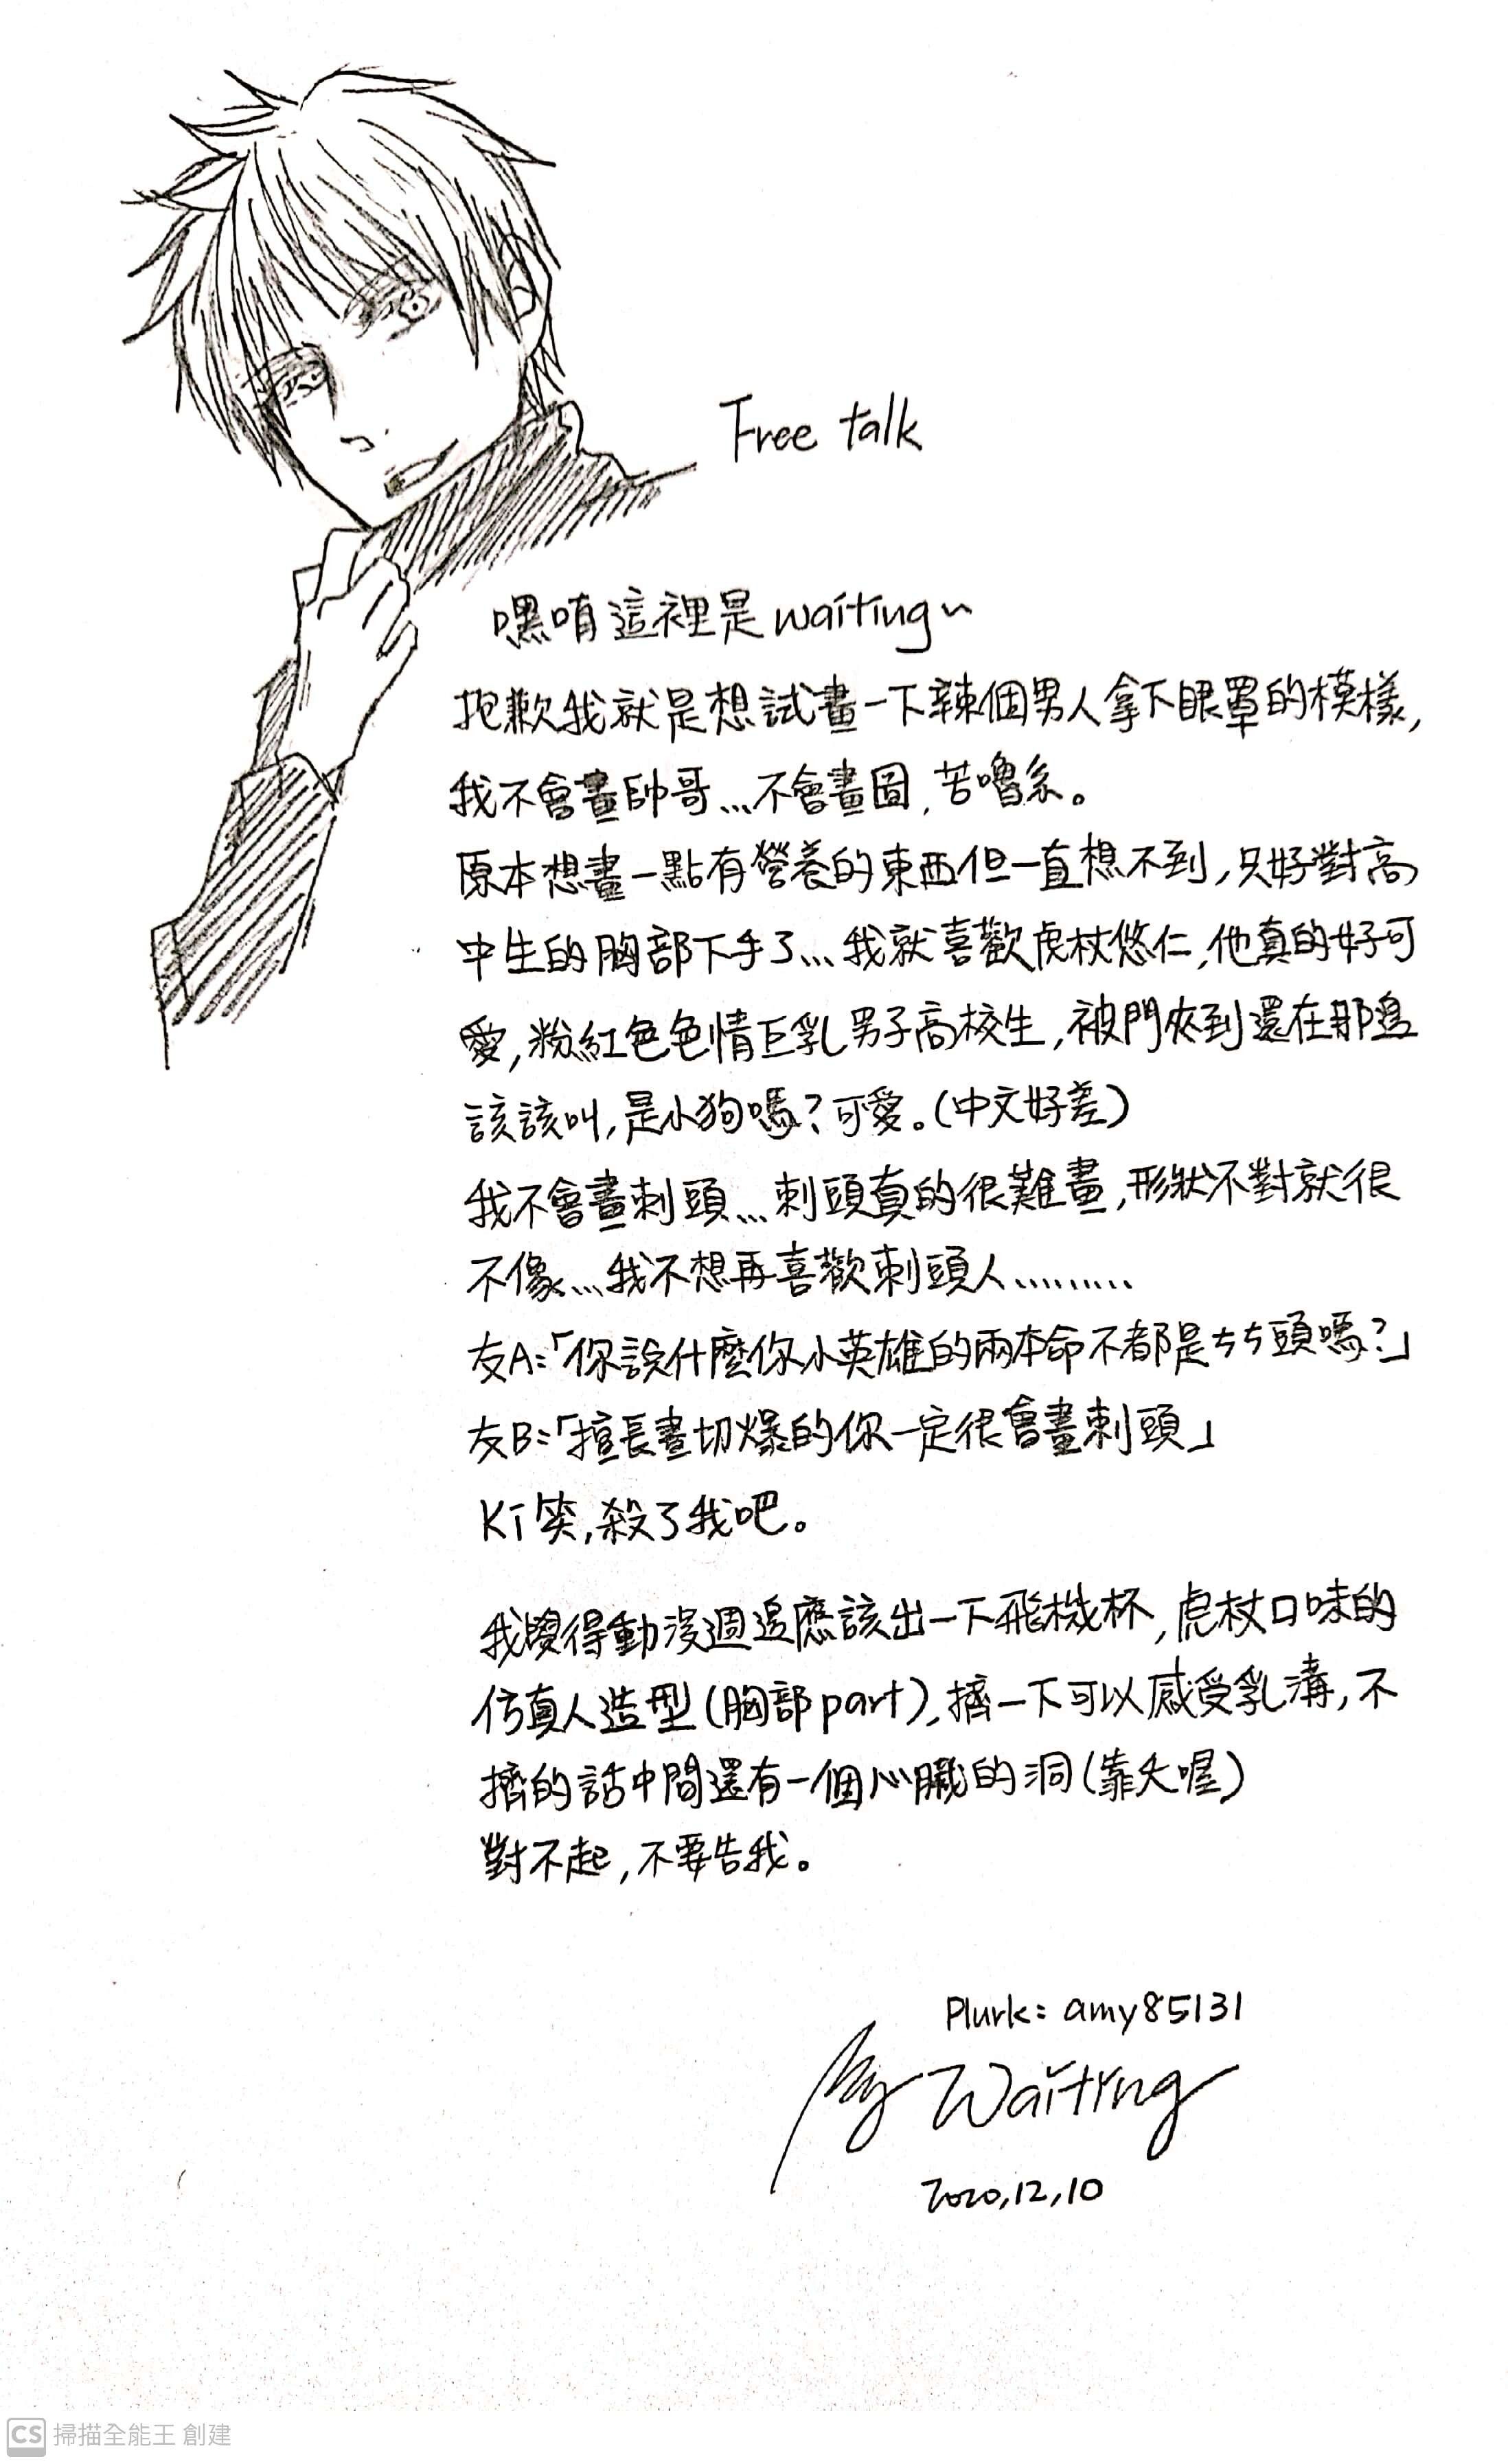 Free talk
嘿咱這裡是waiting~
抱歉我就是想試畫一下辣個男人拿下眼罩的模樣,
我不會畫帥哥...不會畫圖,苦嚕系。
原本想畫一點有營養的東西但一直想不到,只好對高
中生的胸部下手了...我就喜歡虎杖悠仁,他真的好可
愛,粉紅色色情巨乳男子高校生,被門夾到還在那邊
該該叫,是小狗嗎?可愛。(中文好差)
我不會畫刺頭...刺頭真的很難畫,形狀不對就很
不像...我不想再喜歡刺頭人.........
友A:「你說什麼你小英雄的兩本命不都是ㄘㄘ頭嗎?」
友B:「擅長畫切爆的你一定很會畫刺頭」
Ki笑,殺了我吧。
我覺得動漫週邊應該出一下飛機杯,虎杖口味的
仿真人造型(胸部part),擠一下可以感受乳溝,不
擠的話中間還有一個心臟的洞(靠夭喔)
對不起,不要告我。
Plurk: amy85131
Waiting
2020,12,10
CS 掃描全能王 創建